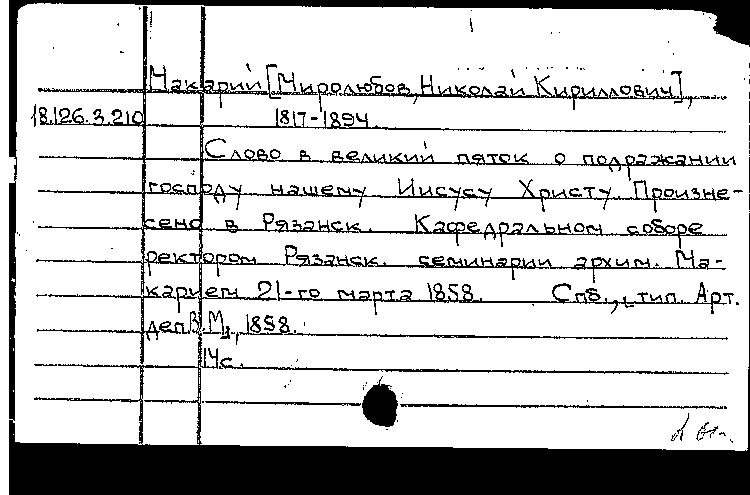 Макарий [Миролюбов, Николай Кириллович],
18.126.3.210 1817-1894.
Слово в великий пяток о подражании
господу нашему Иисусу Христу Произне-
сено в Рязанск. Кафедральном соборе
ректором Рязанск. семинарии архим. Ма-
карием 21-го марта 1858. Спб., тип. Арт.
деп. В. М., 1858.
14с.